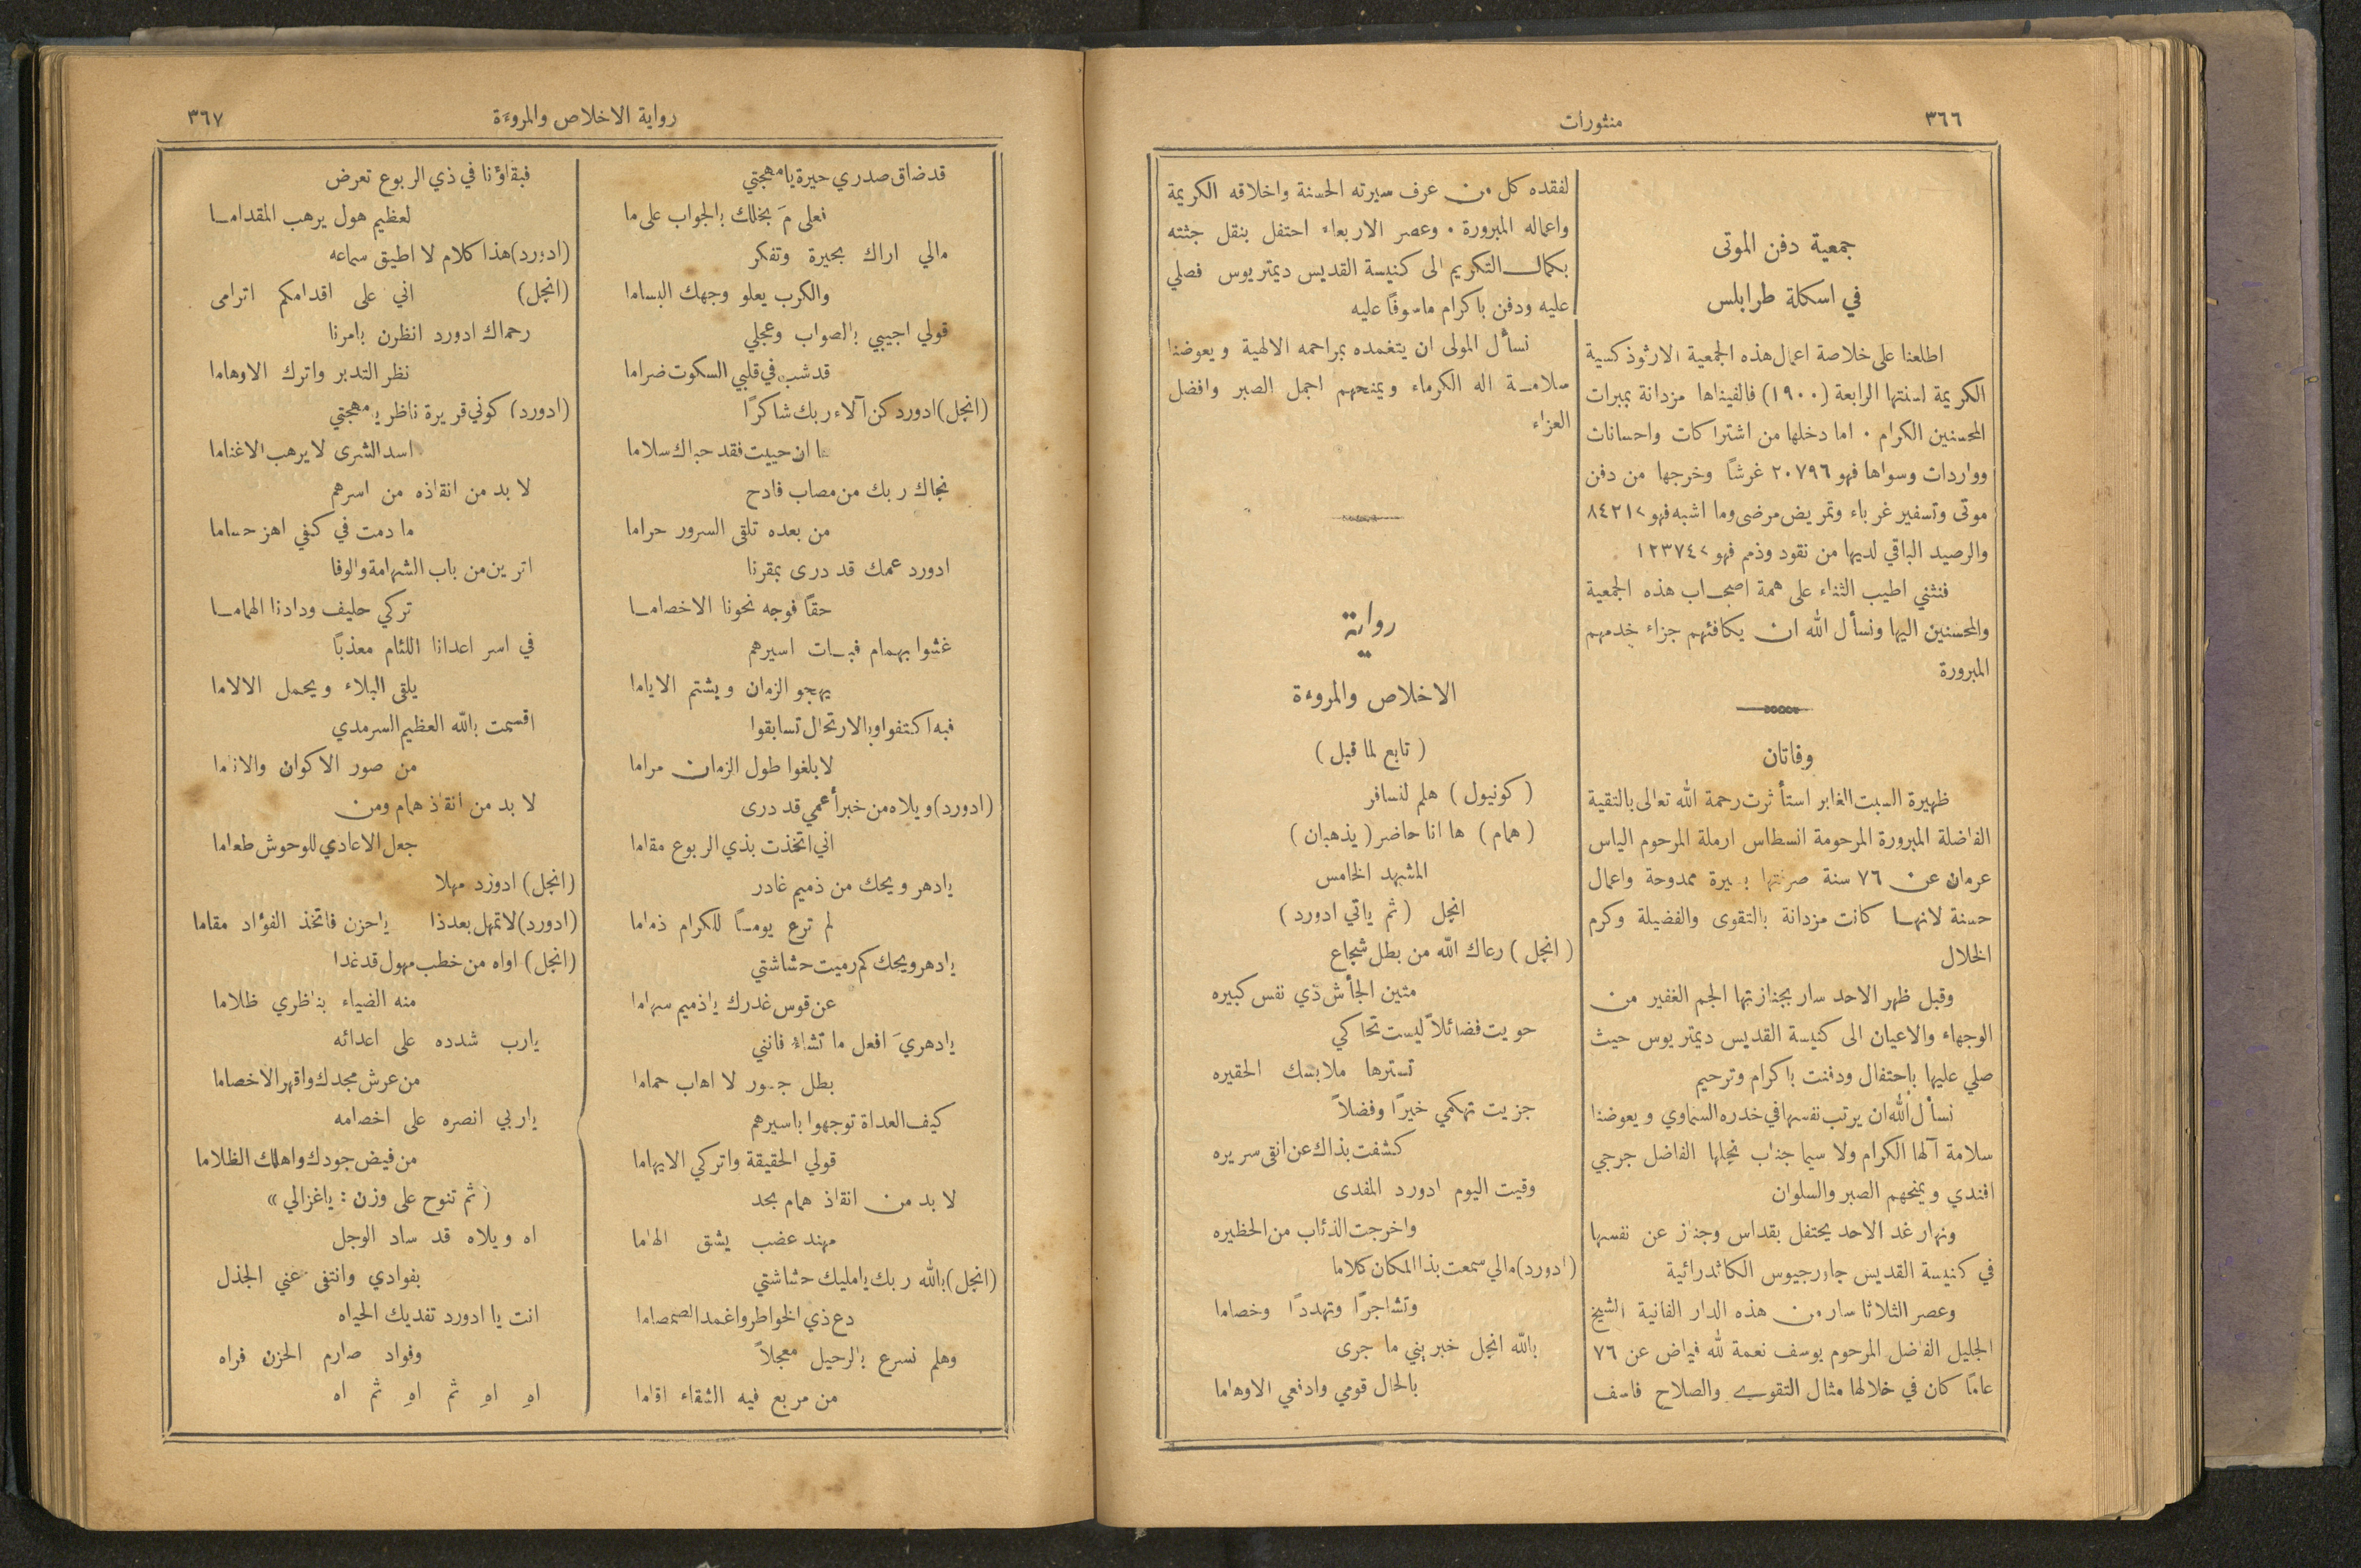 ٣٦٦
منثورات
جمعية دفن الموتى
في اسكلة طرابلس
اطلعنا على خلاصة اعمال هذه الجمعية الارثوذكسية
الكريمة لسنتها الرابعة (١٩٠٠) فالفيناها مزدانة بمبرات
المحسنين الكرام . اما دخلها من اشتراكات واحسانات
وواردات وسواها فهو ٢٠٧٩٦ غرشًا وخرجها من دفن
موتى وتسفير غرباء وتمريض مرضى وما اشبه فهو ٨٤٢١
والرصيد الباقي لديها من نقود وذمم فهو ١٢٣٧٤
فنثني اطيب الثناء على همة اصحاب هذه الجمعية
والمحسنين اليها ونسأل الله ان يكافئهم جزاء خدمهم
المبرورة
وفاتان
ظهيرة السبت الغابر استأثرت رحمة الله تعالى بالتقية
الفاضلة المبرورة المرحومة انسطاس ارملة المرحوم الياس
عرمان عن ٧٦ سنة صرفتها بسيرة ممدوحة واعمال
حسنة لانها كانت مزدانة بالتقوى والفضيلة وكرم
الخلال
وقبل ظهر الاحد سار بجنازتها الجم الغفير من
الوجهاء والاعيان الى كنيسة القديس ديمتريوس حيث
صلي عليها باحتفال ودفنت باكرام وترحيم
نسأل الله ان يرتب نفسها في خدره السماوي ويعوضنا
سلامة آلها الكرام ولا سيما جناب نجلها الفاضل جرجي
افندي ويمنحهم الصبر والسلوان
ونهار غد الاحد يحتفل بقداس وجناز عن نفسها
في كنيسة القديس جاورجيوس الكاثدرائية
وعصر الثلاثا سار من هذه الدار الفانية الشيخ
الجليل الفاضل المرحوم يوسف نعمة لله فياض عن ٧٦
عامًا كان في خلالها مثال التقوى والصلاح فاسف
لفقده كل من عرف سيرته الحسنة واخلاقه الكريمة
واعماله المبرورة . وعصر الاربعاء احتفل بنقل جثته
بكمال التكريم الى كنيسة القديس ديمتريوس فصلي
عليه ودفن باكرام ماسوفًا عليه
نسأل المولى ان يتغمده بمراحمه الالهية ويعوضنا
سلامة اله الكرماء ويمنحهم اجمل الصبر وافضل
العزاء
رواية
الاخلاص والمروءة
( تابع لما قبل )
( كونيول ) هلم لنسافر
( همام ) ها انا حاضر ( يذهبان )
المشهد الخامس
انجل ( ثم ياتي ادورد )
( انجل ) رعاك الله من بطل شجاع
متين الجأش ذي نفس كبيره
حويت فضائلاً ليست تحاكي
تسترها ملابسك الحقيره
جزيت تهكمي خيرًا وفضلاً
كشفت بذاك عن انقى سريره
وقيت اليوم ادورد المفدى
واخرجت الذئاب من الحظيره
(ادورد) مالي سمعت بذا المكان كلاما
وتشاجرًا وتهددًا وخصاما
بالله انجل خبريني ما جرى
بالحال قومي وادفعي الاوهاما
رواية الاخلاص والمروءة
٣٦٧
قد ضاق صدري حيرة يا مهجتي
فعلى مَ بخلك بالجواب على ما
مالي اراك بحيرة وتفكر
والكرب يعلو وجهك البساما
قولي اجيبي بالصواب وعجلي
قد شب في قلبي السكوت ضراما
(انجل) ادورد كن آلاء ربك شاكرًا
ما ان حييت فقد حباك سلاما
نجاك ربك من مصاب فادح
من بعده تلقى السرور حراما
ادورد عمك قد درى بمقرنا
حقًا فوجه نحونا الاخصاما
غثوا بهمام فبات اسيرهم
يهجو الزمان ويشتم الاياما
فبه اكتفوا وبالارتحال تسابقوا
لا بلغوا طول الزمان مراما
(ادورد) ويلاه من خبر أعمي قد درى
اني اتخذت بذي الربوع مقاما
يا دهر ويحك من ذميم غادر
لم ترع يومًا للكرام ذماما
يا دهر ويحك كم رميت حشاشتي
عن قوس غدرك يا ذميم سهاما
يا دهريَ افعل ما تشاء فانني
بطل جسور لا اهاب حماما
كيف العداة توجهوا باسيرهم
قولي الحقيقة واتركي الايهاما
لا بد من انقاذ همام بحد
مهند عضب يشق الهاما
(انجل) بالله ربك يا مليك حشاشتي
دع ذي الخواطر واغمد الصمصاما
وهلم نسرع بالرحيل معجلاً
من مربع فيه الشقاء اقاما
فبقاؤنا في ذي الربوع تعرض
لعظيم هول يرهب المقداما
(ادورد) هذا كلام لا اطيق سماعه
(انجل) اني على اقدامكم اترامى
رحماك ادورد انظرن بامرنا
نظر التدبر واترك الاوهاما
(ادورد) كوني قريرة ناظر يا مهجتي
اسد الشرى لا يرهب الاغناما
لا بد من انقاذه من اسرهم
ما دمت في كفي اهز حساما
اترين من باب الشهامة والوفا
تركي حليف ودادنا الهماما
في اسر اعدانا اللئام معذبًا
يلقى البلاء ويحمل الالاما
اقسمت بالله العظيم السرمدي
من صور الاكوان والاناما
لا بد من انقاذ همام ومن
جعل الاعادي للوحوش طعاما
(انجل) ادورد مهلا
(ادورد) لا تمهل بعد ذا يا حزن فاتخذ الفؤاد مقاما
(انجل) اواه من خطب مهول قد غدا
منه الضياء بناظري ظلاما
يارب شدده على اعدائه
من عرش مجدك واقهر الاخصاما
ياربي انصره على اخصامه
من فيض جودك واهلك الظلاما
( ثم تنوح على وزن : ياغزالي »
اه ويلاه قد ساد الوجل
بفوادي وانتفى عني الجذل
انت يا ادورد تفديك الحياه
وفواد صارم الحزن فراه
اهِ اهِ ثم اهِ ثم اه